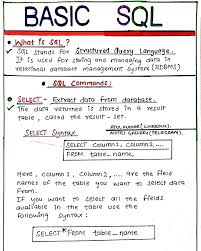 BASIC SQL
What is SQL?
SQL stands for Structured Query Language.
It is used for storing and managing data in
relational database management System (RDBMS)
SQL Commands:
SELECT - Extract data from database.
The data returned is stored in a result
table, called the result-set.
(LINKEDIN)
SELECT Syntax
NOTES GALLERY (TELEGRAM)
SELECT column1, column2,....
FROM table_name,
Here, column1, column2,...., are the field
names of the table you want to select data
from.
If you want to select all the fields
available in the table use the
following syntax:
SELECT * FROM table_name;